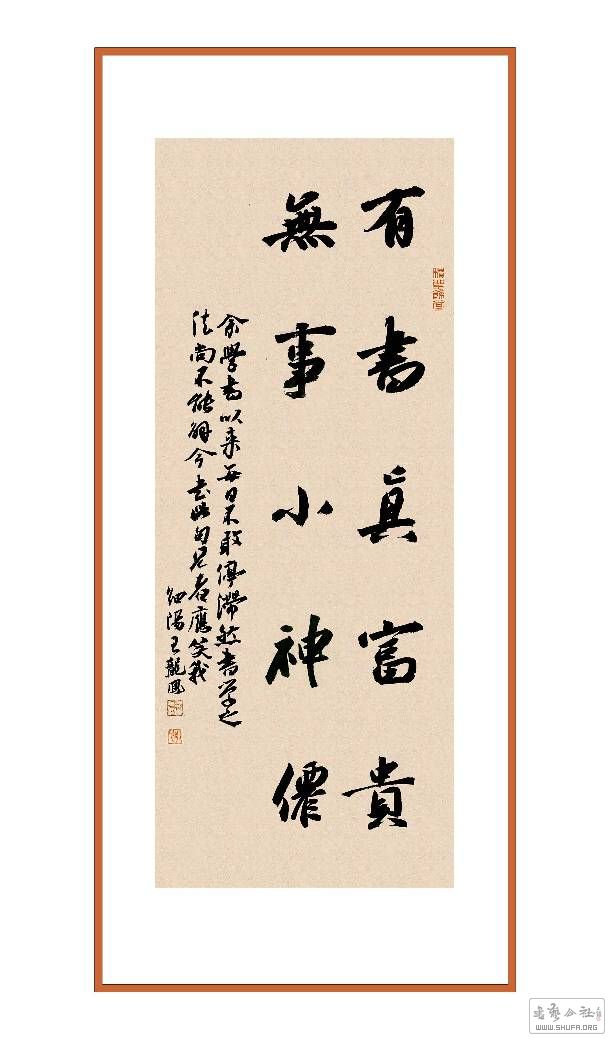 有書真富貴
無事小神僊
余學書以来每日不敢停滯然書學之
法尚不能解今書此句見者應笑我
細陽王龍鳳
書藝公社
WWW.SHUFA.ORG